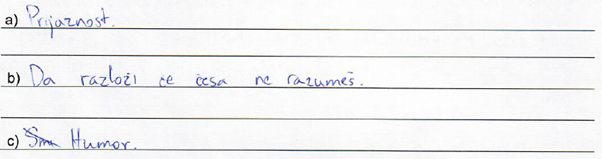 a) Prijaznost.
b) Da razloži če česa ne razumeš.
c) Humor.